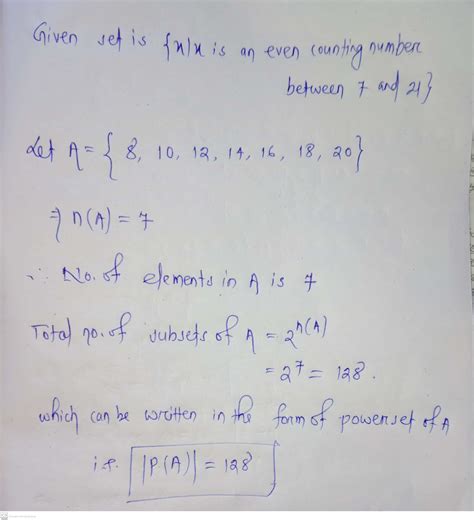 Given set is {x|x is an even counting number
between 7 and 21}
Let A = { 8, 10, 12, 14, 16, 18, 20}
⇒ n(A) = 7
∴ No. of elements in A is 7
Total no. of subsets of A = 2^n(A)
= 2^7 = 128.
which can be written in the form of powerset of A
i.e. |P(A)| = 128